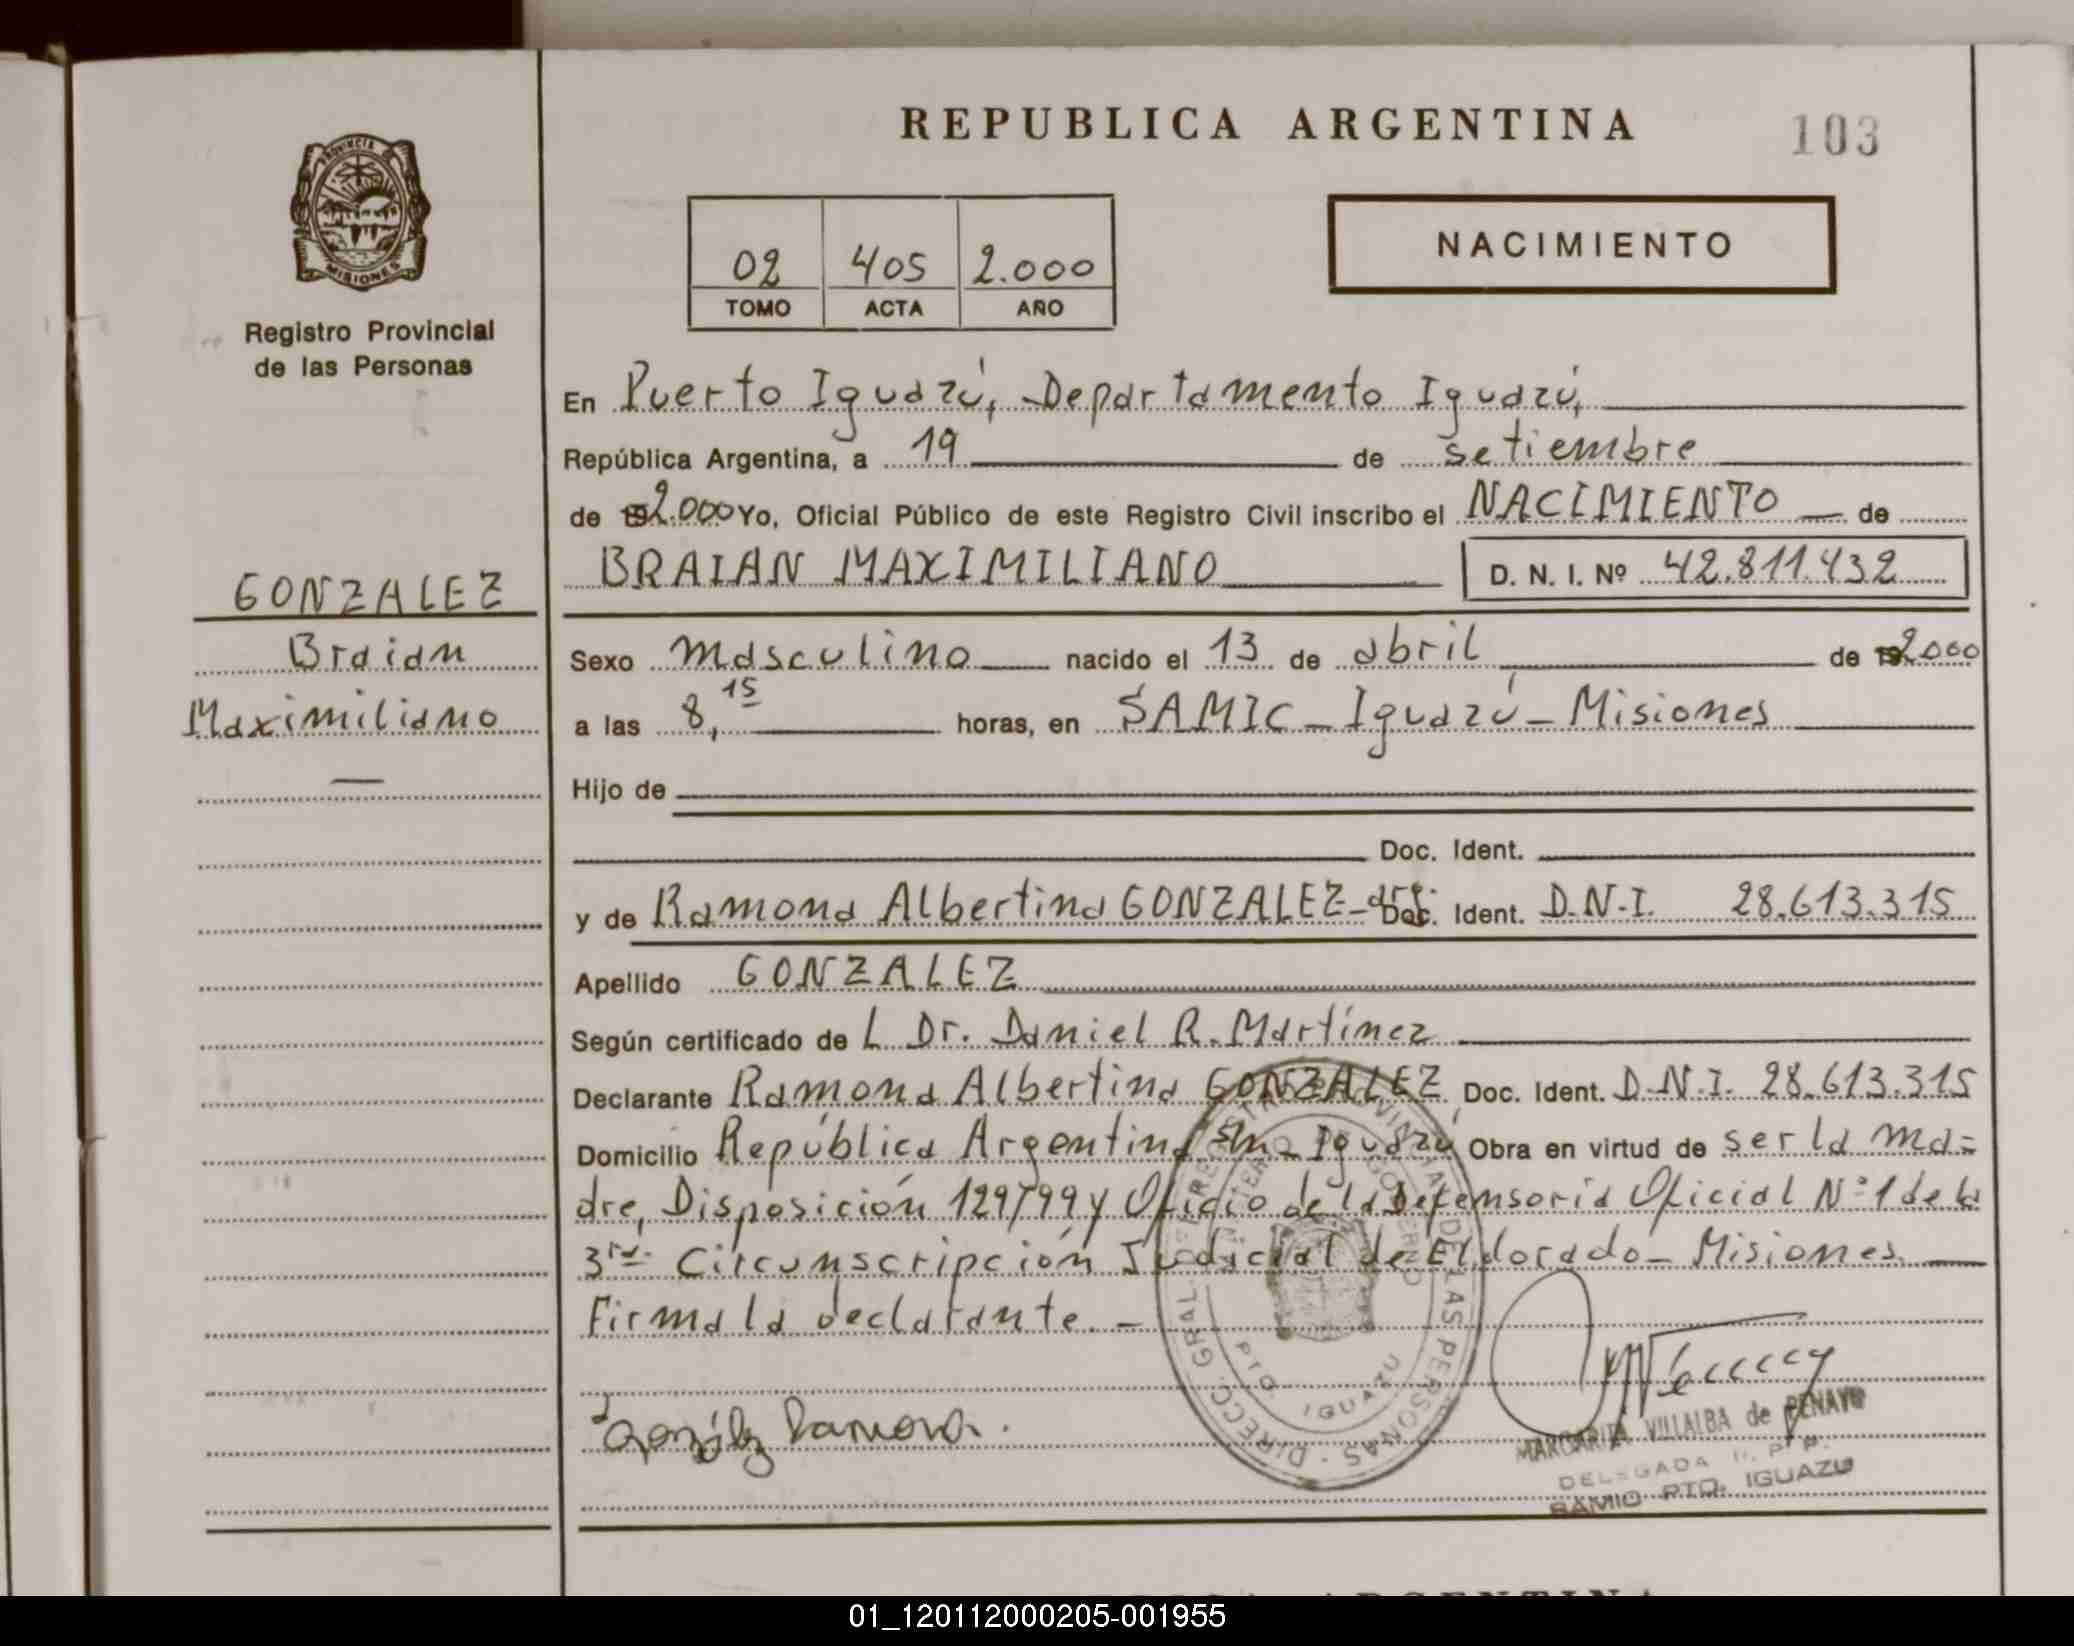 REPUBLICA ARGENTINA
103
PROVINCIA
MISIONES
Registro Provincial
de las Personas
02 405 2.000
TOMO ACTA AÑO
NACIMIENTO
En Puerto Iguazú, Departamento Iguazú,
República Argentina, a 19 de setiembre
de 19 2.000 Yo, Oficial Público de este Registro Civil inscribo el NACIMIENTO de
BRAIAN MAXIMILIANO D. N. I. Nº 42.811.432
GONZALEZ
Braian
Maximiliano
Sexo masculino nacido el 13 de abril de 19 2000
a las 8,15 horas, en SAMIC - Iguazú - Misiones
Hijo de
Doc. Ident.
y de Ramona Albertina GONZALEZ - Doc. Ident. D.N.I. 28.613.315
Apellido GONZALEZ
Según certificado de L Dr. Daniel R. Martínez
Declarante Ramona Albertina GONZALEZ Doc. Ident. D.N.I. 28.613.315
Domicilio República Argentina s/n - Iguazú Obra en virtud de ser la ma=
dre, Disposición 129/99 y Oficio de la Defensoría Oficial Nº 1 de la
3ra. Circunscripción Judicial de Eldorado - Misiones
Firma la declarante. -
González Ramona.
DIRECC. GRAL. DE REGISTRO PROVINCIAL DE LAS PERSONAS
MINISTERIO DE GOBIERNO
PTO IGUAZU
MARGARITA VILLALBA de PENAYO
DELEGADA R. P. P.
BAMIO PTO. IGUAZU
01_120112000205-001955